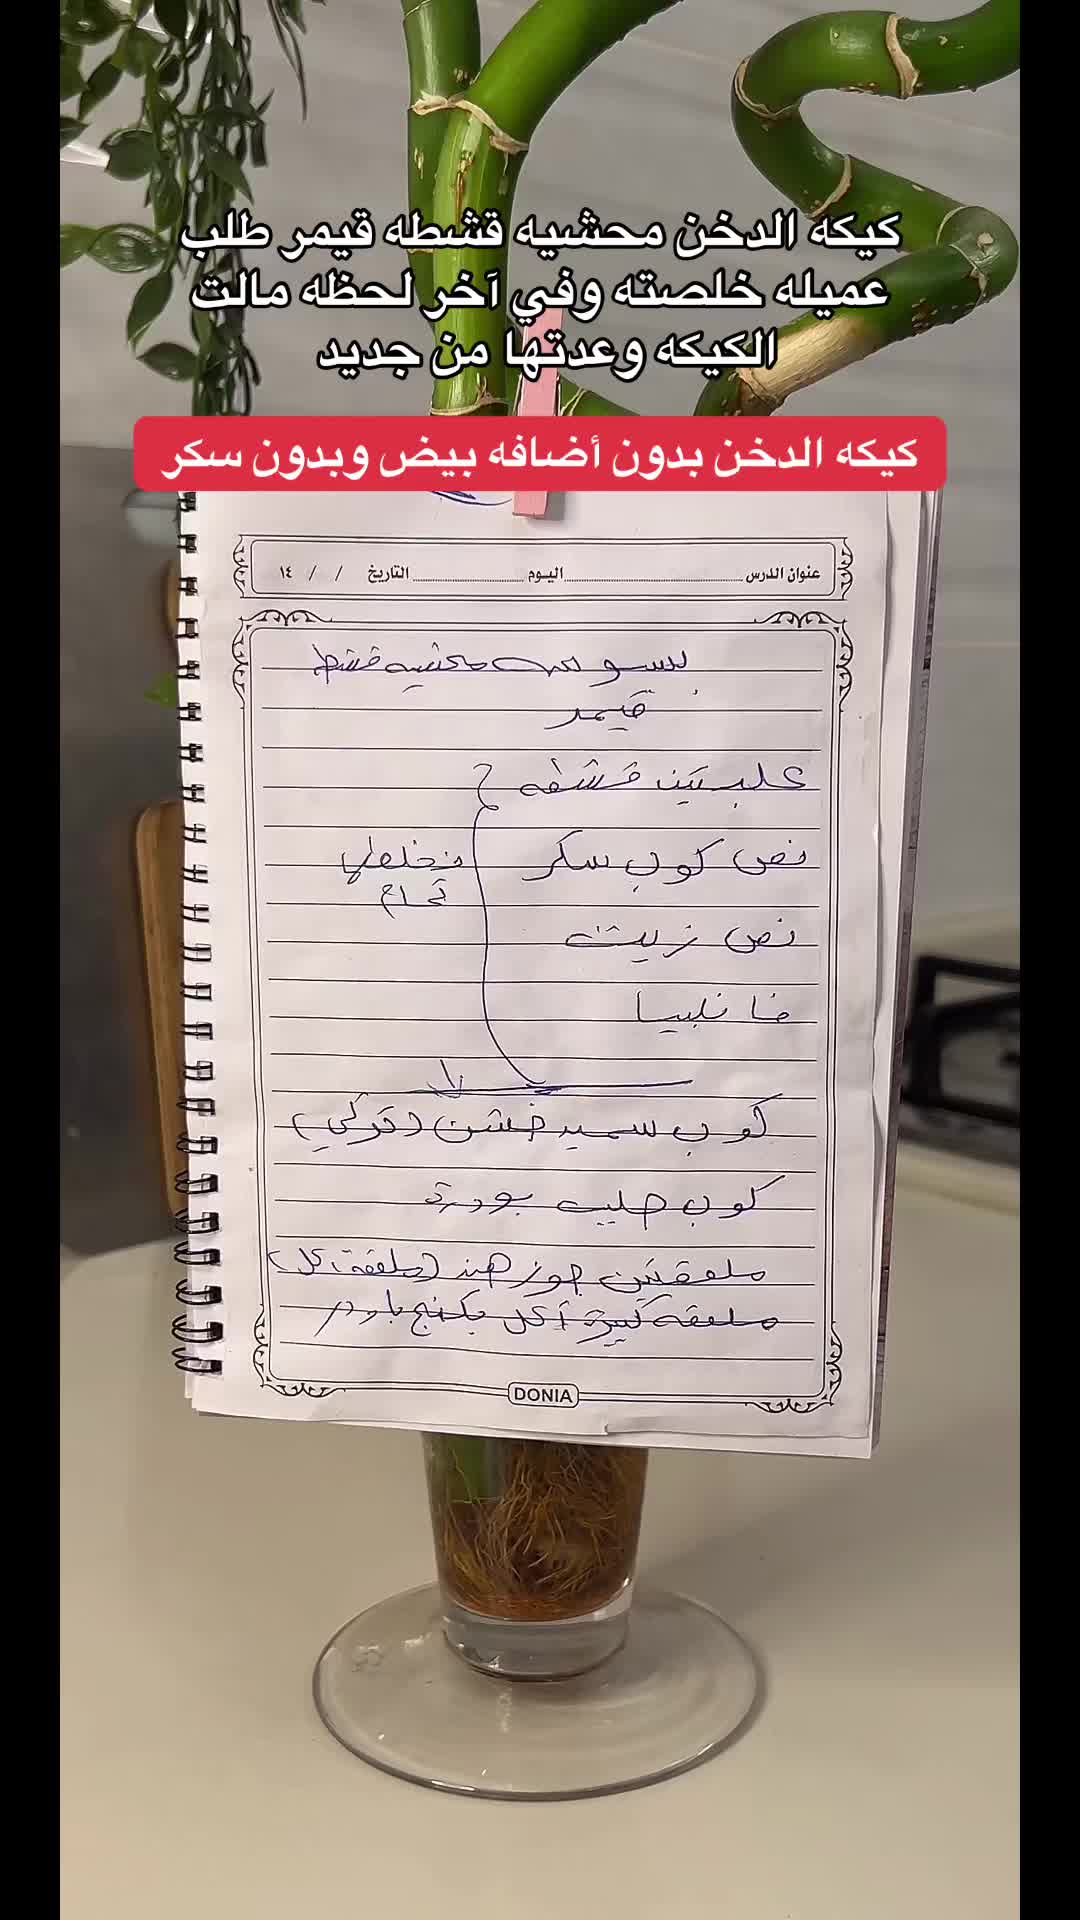 كيكه الدخن محشيه قشطه قيمر طلب
عميله خلصته وفي آخر لحظه مالت
الكيكه وعدتها من جديد
كيكه الدخن بدون أضافه بيض وبدون سكر
عنوان الدرس اليوم التاريخ / / ١٤
بسبوسه محشيه قشطه
قيمر
علبتين قشطه
نص كوب سكر
نخلطها
نص زيت
فانيليا
كوب سميد خشن (تركي)
كوب حليب بودرة
ملعقتين جوز هند (ملعقة اكل)
ملعقه كبيرة أكل بكنج باودر
DONIA